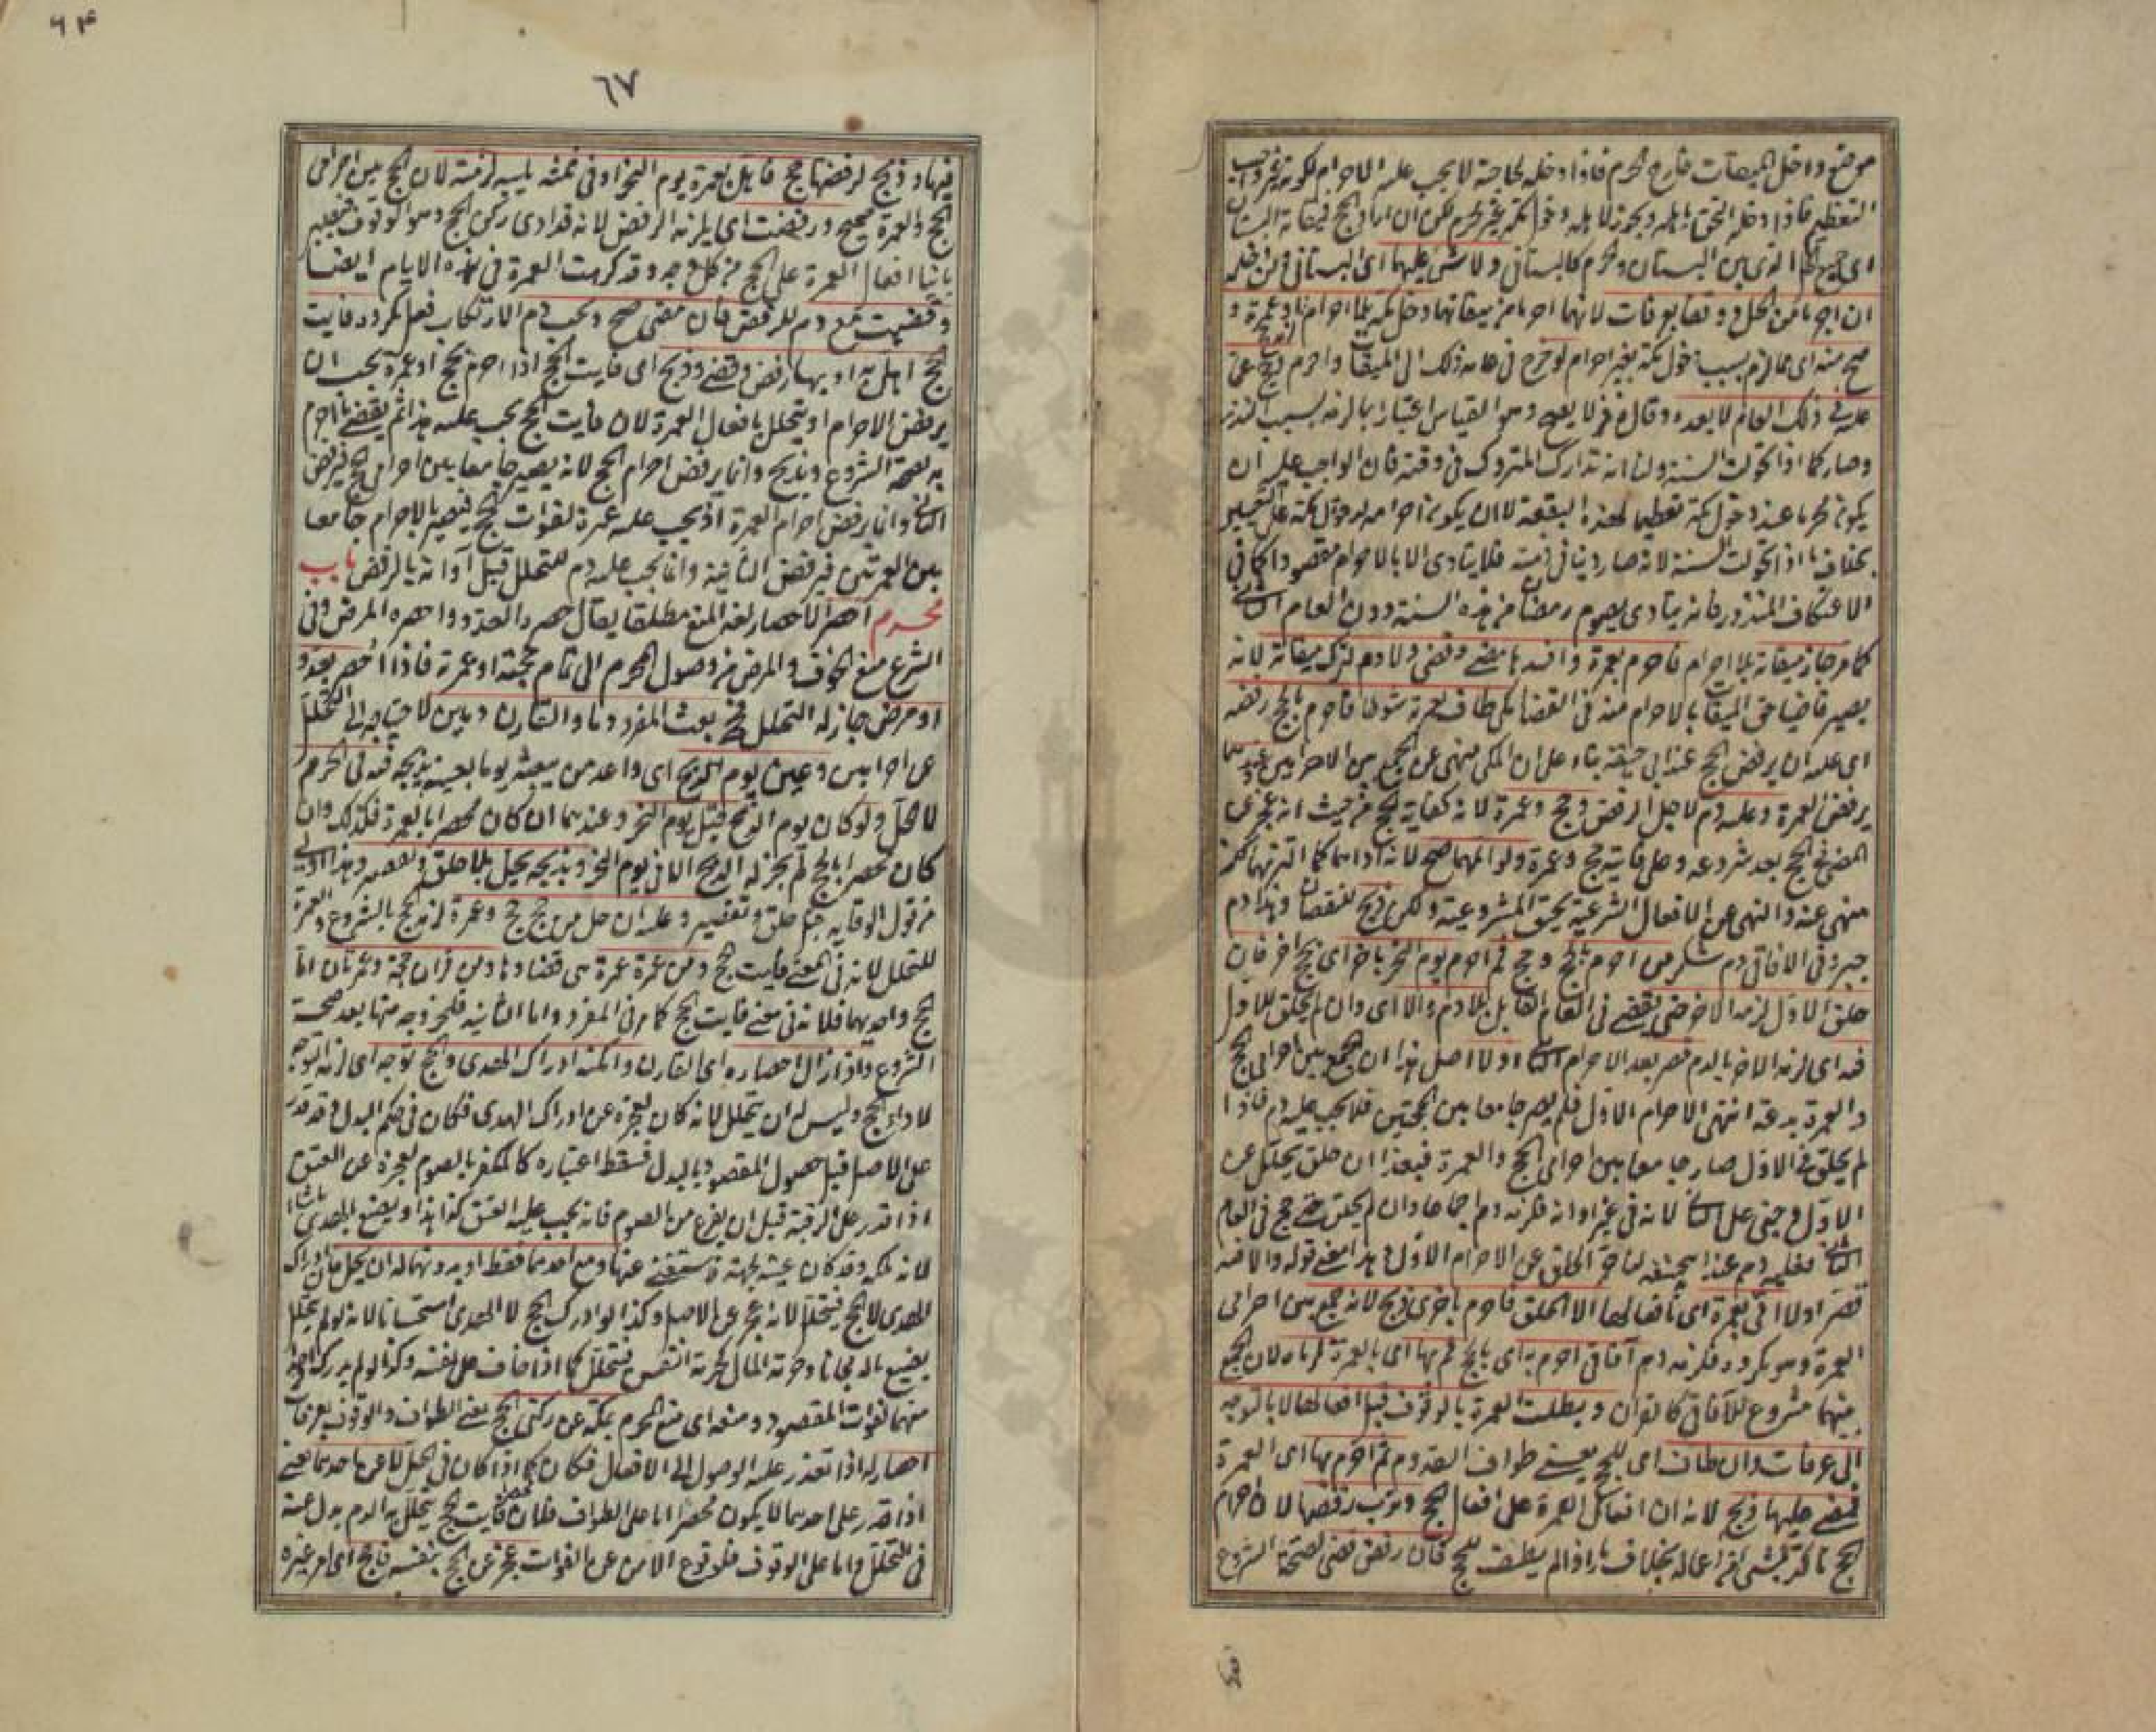 موضع داخل الميقات خارج الحرم فاذا دخله لحاجة لا يجب عليه الاحرام لكونه غير واجب
التعظيم فاذا دخله التحق باهله ويجوز لاهله دخول مكة بغير احرام لكن ان اراد الحج فميقاته البستان
اى جميع الحل الذى بين البستان والحرم كالبستانى ولا شئ عليهما اى البستانى ومن دخله
ان احرما من الحل ووقفا بعرفات لانهما احرما من ميقاتهما دخل مكة بلا احرام لزمه حج او عمرة و
صح منه اى مما لزم بسبب دخول مكة بغير احرام لو خرج فى عامه ذلك الى الميقات واحرم وحج عما
عليه فى ذلك العام لا بعده وقال زفر لا يصح وهو القياس اعتبارا بما لزمه بسبب النذر
وصار كما اذا تحولت السنة ولنا انه تدارك المتروك فى وقته فان الواجب عليه ان
يكون محرما عند دخول مكة تعظيما لهذه البقعة لا ان يكون احرامه لدخول مكة على التعيين
بخلاف ما اذا تحولت السنة لانه صار دينا فى ذمته فلا يتادى الا بالاحرام مقصودا كما فى
الاعتكاف المنذور فانه يتادى بصوم رمضان من هذه السنة دون العام الثانى
كما مر جاوز ميقاته بلا احرام فاحرم بعمرة وافسدها مضى وقضى ولا دم لترك ميقاته لانه
يصير قاضيا حق الميقات بالاحرام منه فى القضا مكى طاف لعمرة شوطا فاحرم بالحج رفضه
اى عليه ان يرفض الحج عند ابى حنيفة بناء على ان المكى منهى عن الجمع بين الاحرامين وعندهما
يرفض العمرة وعليه دم لاجل الرفض وحج وعمرة لانه كفايت الحج من حيث انه عجز عن
المضى فى الحج بعد شروعه وعلى فايته حج وعمرة ولو اتمهما صح لانه اداهما كما التزمهما لكنه
منهى عنه والنهى عن الافعال الشرعية يحقق المشروعية ولكن ذبح للنقصان وهذا دم
جبر وفى الافاقى دم شكر من احرم بالحج وحج ثم احرم يوم النحر باخر اى بحج اخر فان
حلق للاول لزمه الاخر حتى يقضى فى العام القابل بلا دم والا اى وان لم يحلق للاول
فمه اى لزمه الاخر بالدم قصر بعد الاحرام الثانى او لا اصل هذا ان الجمع بين احرامى الحج
والعمرة بدعة انتهى الاحرام الاول فلم يصر جامعا بين الحجتين فلا يجب عليه دم فاذا
لم يحلق فى الاول صار جامعا بين احرامى الحج والعمرة فبعد هذا ان حلق يتحلل عن
الاول وجنى على الثانى لانه فى غير اوانه فلزمه دم اجماعا وان لم يحلق حتى حج فى العام
الثانى فعليه دم عند ابى حنيفة لتاخير الحلق عن الاحرام الاول هذا معنى قوله والا فمه
قصر او لا اتى بعمرة اى بافعالها الا الحلق فاحرم باخرى ذبح لانه جمع بين احرامى
العمرة وهو مكروه فلزمه دم آفاقى احرم به اى بالحج ثم بها اى بالعمرة لزماه لان الجمع
بينهما مشروع للآفاقى كالقران وبطلت العمرة بالوقوف قبل افعالها لا بالتوجه
الى عرفات وان طاف اى للحج يعنى طواف القدوم ثم احرم بها اى العمرة
فمضى عليهما ذبح لانه بان افعال العمرة على افعال الحج وندب رفضها لان احرام
الحج تاكد بشئ من اعماله بخلاف ما اذا لم يطف للحج فان رفض قضى لصحة الشروع
٦٧
٦٤
فيها وذبح لرفضها حج فاهل بعمرة يوم النحر او فى ثلثة يليه لزمته لان الجمع بين احرامى
الحج والعمرة صحيح ورفضت اى يلزمه الرفض لانه قد ادى ركن الحج وهو الوقوف فيصير
بانيا افعال العمرة على الحج من كل وجه وقد كرهت العمرة فى هذه الايام ايضا
وقضيت مع دم للرفض فان مضى صح ويجب دم الارتكاب فعل مكروه فايت
الحج اهل به او بها رفض وقضى وذبح اى فايت الحج اذا احرم بحج او عمرة يجب ان
يرفض الاحرام او يتحلل بافعال العمرة لان فايت الحج يجب عليه هذا ثم يقضى ما احرم
به لصحة الشروع وذبح وانما يرفض احرام الحج لانه يصير جامعا بين احرامى الحج فيرفض
الثانى وانما يرفض احرام العمرة اذ يجب عليه عمرة لفوات الحج فيصير بالاحرام جامعا
بين العمرتين فيرفض الثانية وانما يجب عليه دم للتحلل قبل آوانه بالرفض باب
محرم احصر الاحصار لغة المنع مطلقا يقال حصره العدو واحصره المرض وفى
الشرع منع الخوف والمرض من وصول المحرم الى تمام حجته او عمرته فاذا احصر بعدو
او مرض جاز له التحلل فح بعث المفرد دما والقارن دمين لاحتياجه الى التحلل
عن احرامين وعين يوم الذبح اى واعد من يبعثه يوما بعينه يذبحه فيه فى الحرم
لا الحل ولو كان يوم الذبح قبل يوم النحر وعندهما ان كان محصرا بالعمرة فكذلك وان
كان محصرا بالحج لم يجز له الذبح الا فى يوم النحر وبذبحه يحل بلا حلق وتقصير وهذا اولى
من قول الوقاية قبل حلق وتقصير وعليه ان حل من حج حج وعمرة لزم الحج بالشروع والعمرة
للتحلل لانه فى معنى فايت الحج ومن عمرة عمرة هى قضاؤها ومن قران حجة وعمرتان اما
الحج واحديهما فلانه فى معنى فايت الحج كما مر فى المفرد واما الثانية فلخروجه منها بعد صحة
الشروع واذا زال احصاره اى القارن وامكنه ادراك الهدى والحج توجه اى لزمه التوجه
لاداء الحج وليس له ان يتحلل لانه كان لعجزه عن ادراك الهدى فكان فى حكم البدل وقد قدر
على الاصل قبل حصول المقصود بالبدل فسقط اعتباره كالمكفر بالصوم لعجزه عن العتق
اذا قدر على الرقبة قبل ان يفرغ من الصوم فانه يجب عليه العتق كذا هذا ويصنع بالهدى ما شاء
لانه ملكه وقد كان عينه لجهة فاستغنى عنها ومع احدهما فقط او بدونهما له ان يحل فان ادراك
الهدى لا الحج فيتحلل لانه عجز عن الاصل وكذا لو ادرك الحج لا الهدى استحسانا لانه لو لم يتحلل
يضيع ماله مجانا وحرمة المال كحرمة النفس فيتحلل كما اذا خاف على نفسه وكذا لو لم يدرك واحدا
منهما لفوات المقصود ومنعه اى منع المحرم بمكة عن ركنى الحج يعنى الطواف والوقوف بعرفات
احصار له اذا تعذر عليه الوصول الى الافعال فكان كما اذا كان فى الحل لا عن احدهما يعنى
اذا قدر على احدهما لا يكون محصرا اما على الطواف فلان فايت الحج يتحلل به والدم بدل عنه
فى التحلل واما على الوقوف فلوقوع الامن عن الفوات عجز عن الحج بنفسه فاحج اى امر غيره